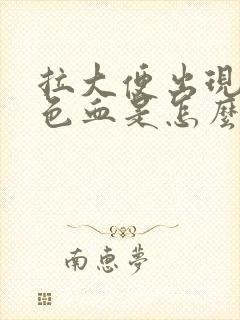 拉大便出現
色血是怎麼
南惠夢